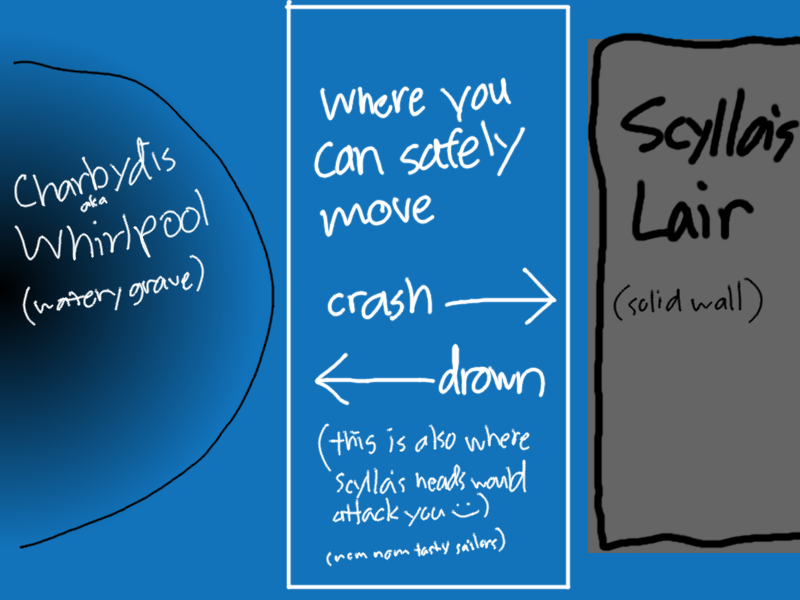 Charbydis
aka
Whirlpool
(watery grave)
Where you
can safely
move
crash
drown
(this is also where
Scylla's heads would
attack you :))
(nom nom tasty sailors)
Scylla's
Lair
(solid wall)